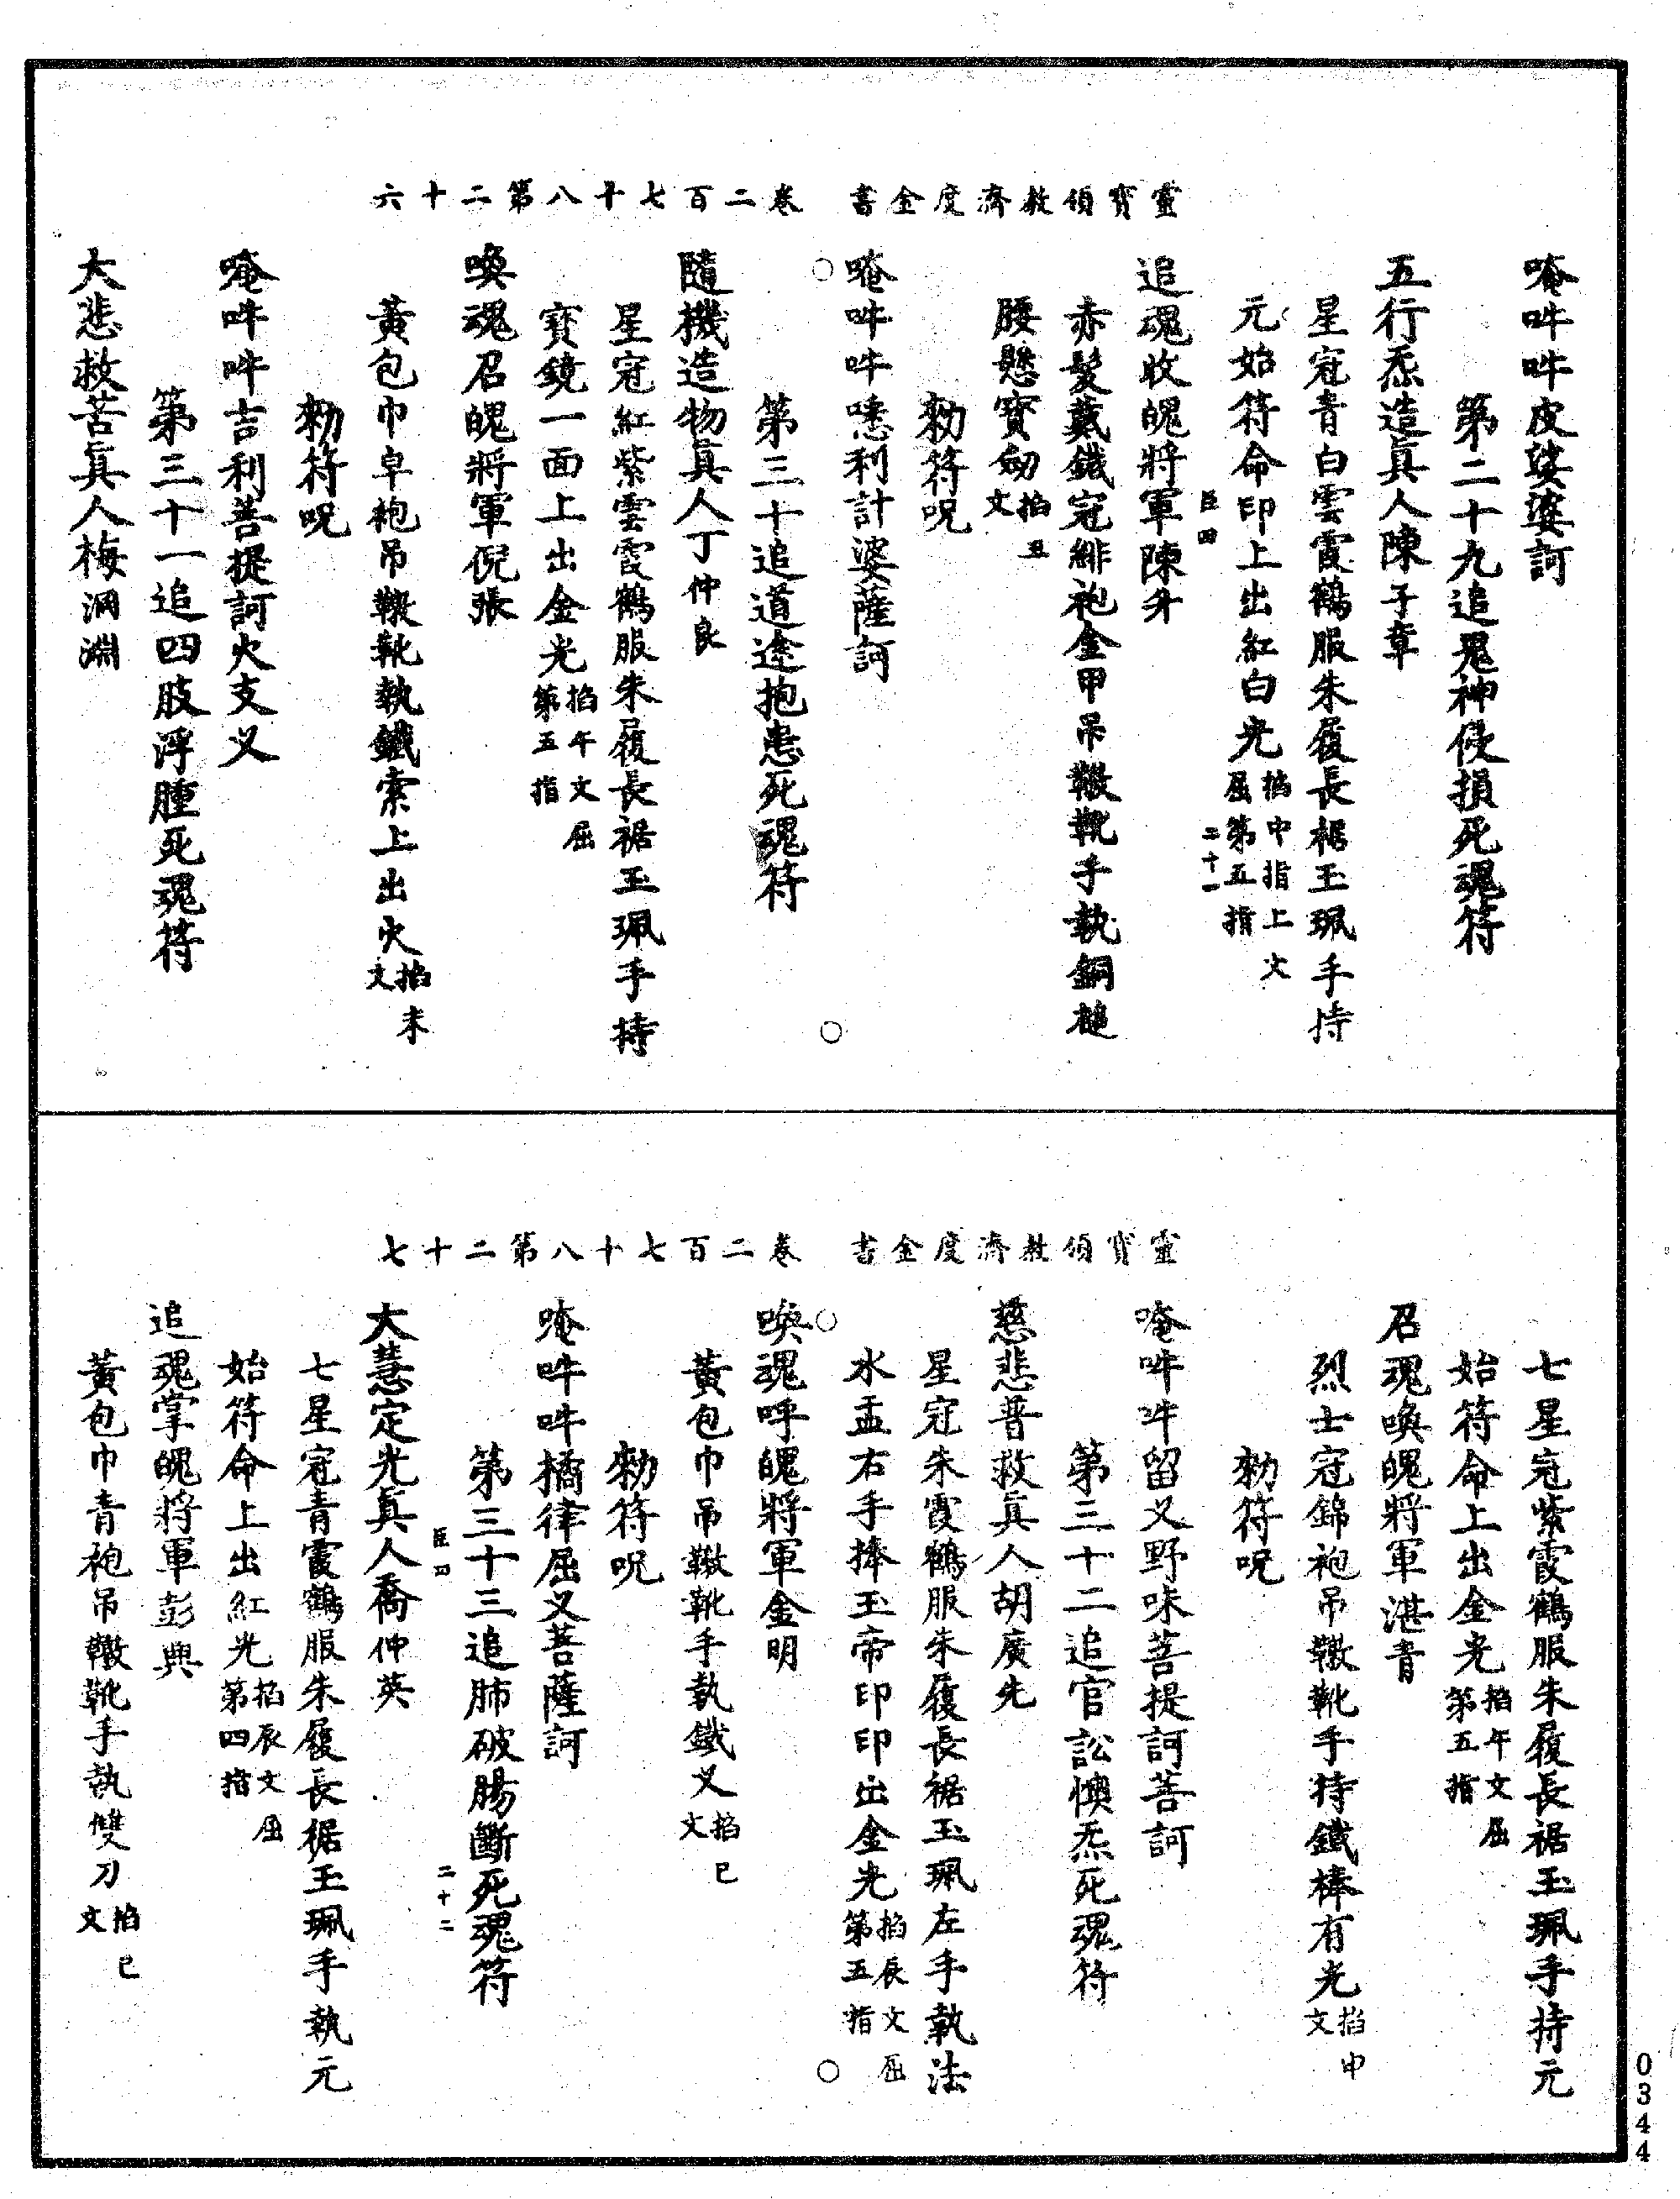 靈寶領教濟度金書　卷二百七十八第二十六
唵吽吽皮娑婆訶
第二十九追鬼神侵損死魂符
五行炁造真人陳子章
星冠青白雲霞鶴服朱履長裾玉珮手持
元始符命印上出紅白光掐中指上文屈第五指
臣四　二十一
追魂收魄將軍陳身
赤髮戴鐵冠緋袍金甲吊𩌑靴手執銅槌
腰懸寶劒掐丑文
勑符呪
唵吽吽㗭利計婆薩訶
第三十追道途抱患死魂符
隨機造物真人丁仲良
星冠紅紫雲霞鶴服朱履長裾玉珮手持
寶鏡一面上出金光掐午文屈第五指
喚魂召魄將軍倪張
黃包巾皁袍吊𩌑靴執鐵索上出火掐未文
勑符呪
唵吽吽吉利菩提訶火支义
第三十一追四肢浮腫死魂符
大悲救苦真人梅洞淵
靈寶領教濟度金書　卷二百七十八第二十七
七星冠紫霞鶴服朱履長裾玉珮手持元
始符命上出金光掐午文屈第五指
召魂喚魄將軍湛青
烈士冠錦袍吊𩌑靴手持鐵棒有光掐申文
勑符呪
唵吽吽留义野味菩提訶菩訶
第三十二追官訟懊炁死魂符
慈悲普救真人胡廣先
星冠朱霞鶴服朱履長裾玉珮左手執法
水盂右手捧玉帝印印出金光掐辰文屈第五指
喚魂呼魄將軍金明
黃包巾吊𩌑靴手執鐵义掐巳文
勑符呪
唵吽吽橘律屈义菩薩訶
第三十三追肺破腸斷死魂符
臣四　二十二
大慧定光真人喬仲英
七星冠青霞鶴服朱履長裾玉珮手執元
始符命上出紅光掐辰文屈第四指
追魂掌魄將軍彭典
黃包巾青袍吊𩌑靴手執雙刀掐巳文
0344